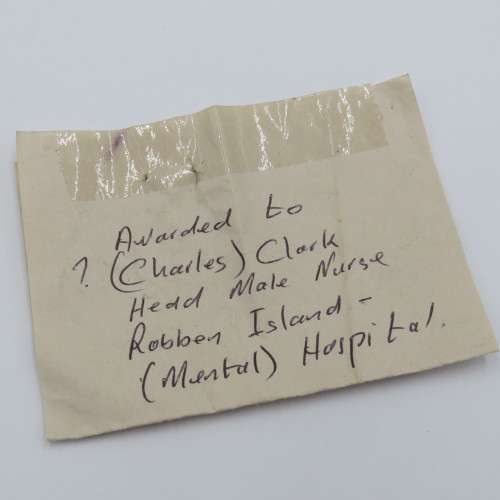 Awarded to
? (Charles) Clark
Head Male Nurse
Robben Island -
(Mental) Hospital.